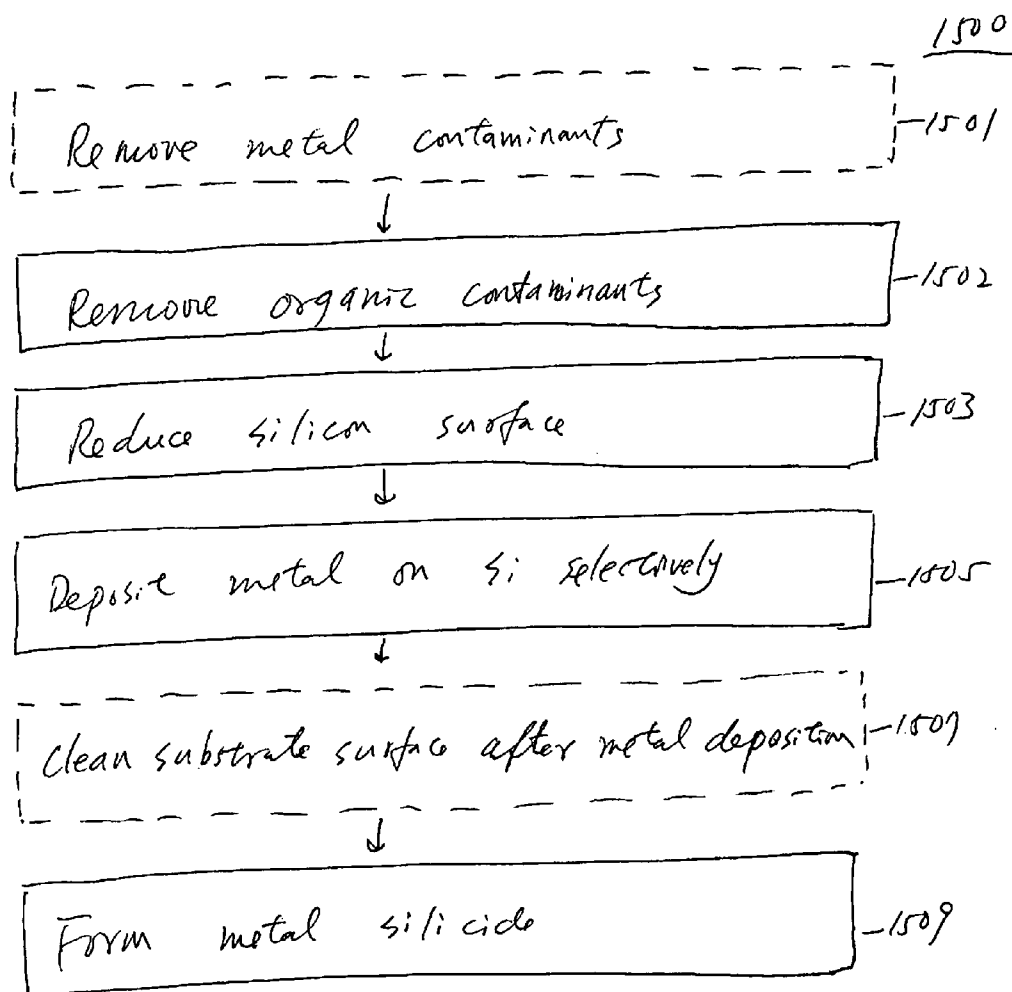 1500
Remove metal contaminants
1501
Remove organic contaminants
1502
Reduce silicon surface
1503
Deposit metal on Si selectively
1505
Clean substrate surface after metal deposition
1507
Form metal silicide
1509